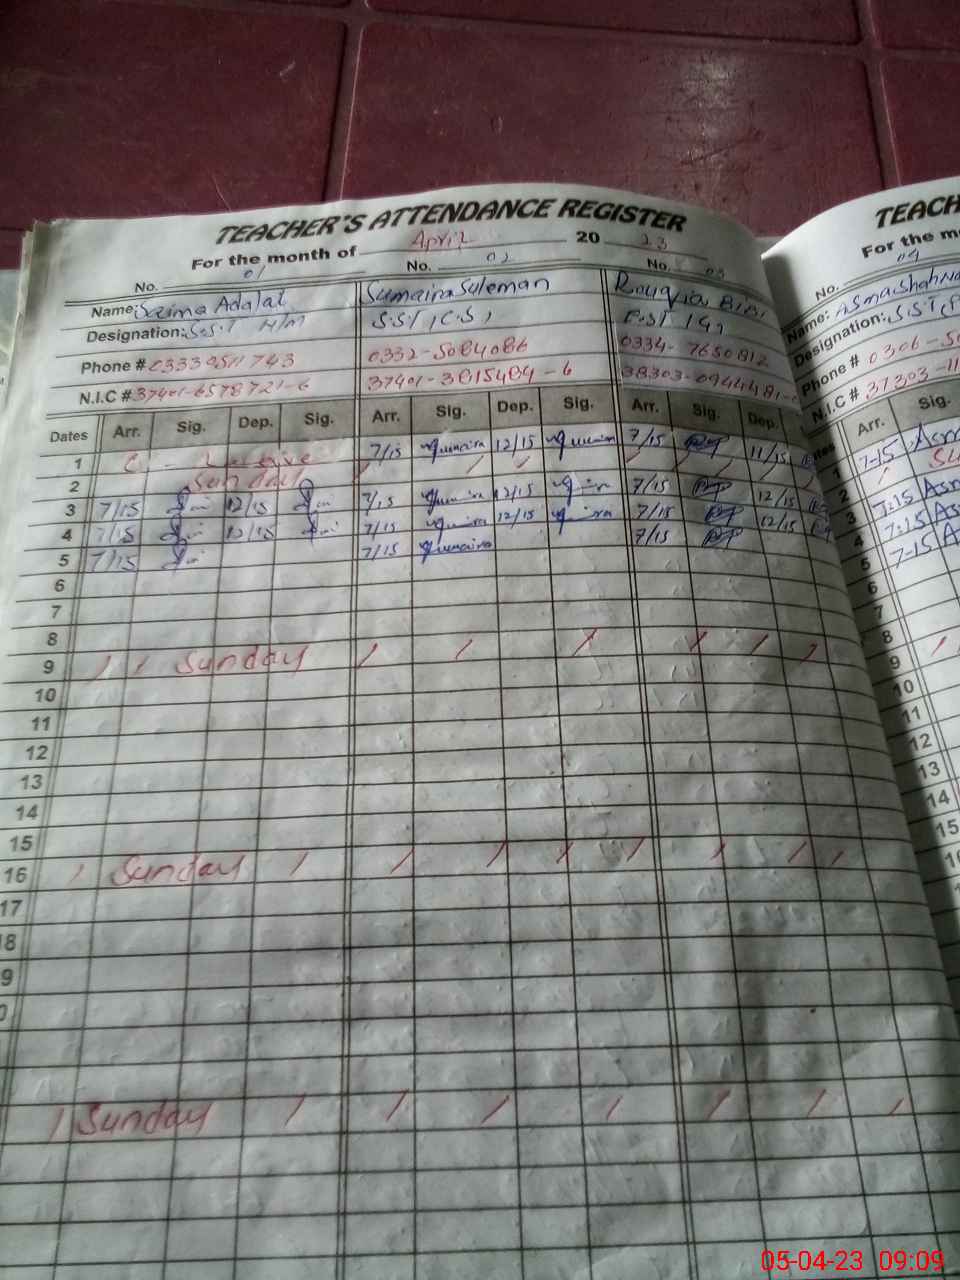 TEACHER'S ATTENDANCE REGISTER
For the month of April 20 23
No. 01 No. 02 No. 03
Name: Saima Adalat Sumaira Suleman Rouqia Bibi
Designation: S.S.T H/M S.S.T (C.S)
Phone # 0332-5084086 0334-7650812
N.I.C # 37401-6578721-6 37401-3615464-6
Dates Arr. Sig. Dep. Sig. Arr. Sig. Dep. Sig. Arr. Sig. Dep.
1 C - Leave 7/15 Sumaira 12/15 Sumaira 7/15 11/15
2 Sunday
3 7/15 12/15 7/15 Sumaira 12/15 7/15 12/15
4 7/15 12/15 7/15 Sumaira 12/15 Sumaira 7/15 12/15
5 7/15 7/15 Sumaira 7/15
6
7
8
9 Sunday
10
11
12
13
14
15
16 Sunday
17
18
9
0
Sunday
TEACH
For the m
No. 04
Name: Asma Shah
Designation: S.ST
Phone # 0306-50
N.I.C # 37303-11
Arr. Sig.
1 7-15 Asm
2 Su
3 7:15 Asm
4 7:15 As
5 7-15 A
6
7
8
9
10
11
12
13
14
15
05-04-23 09:09